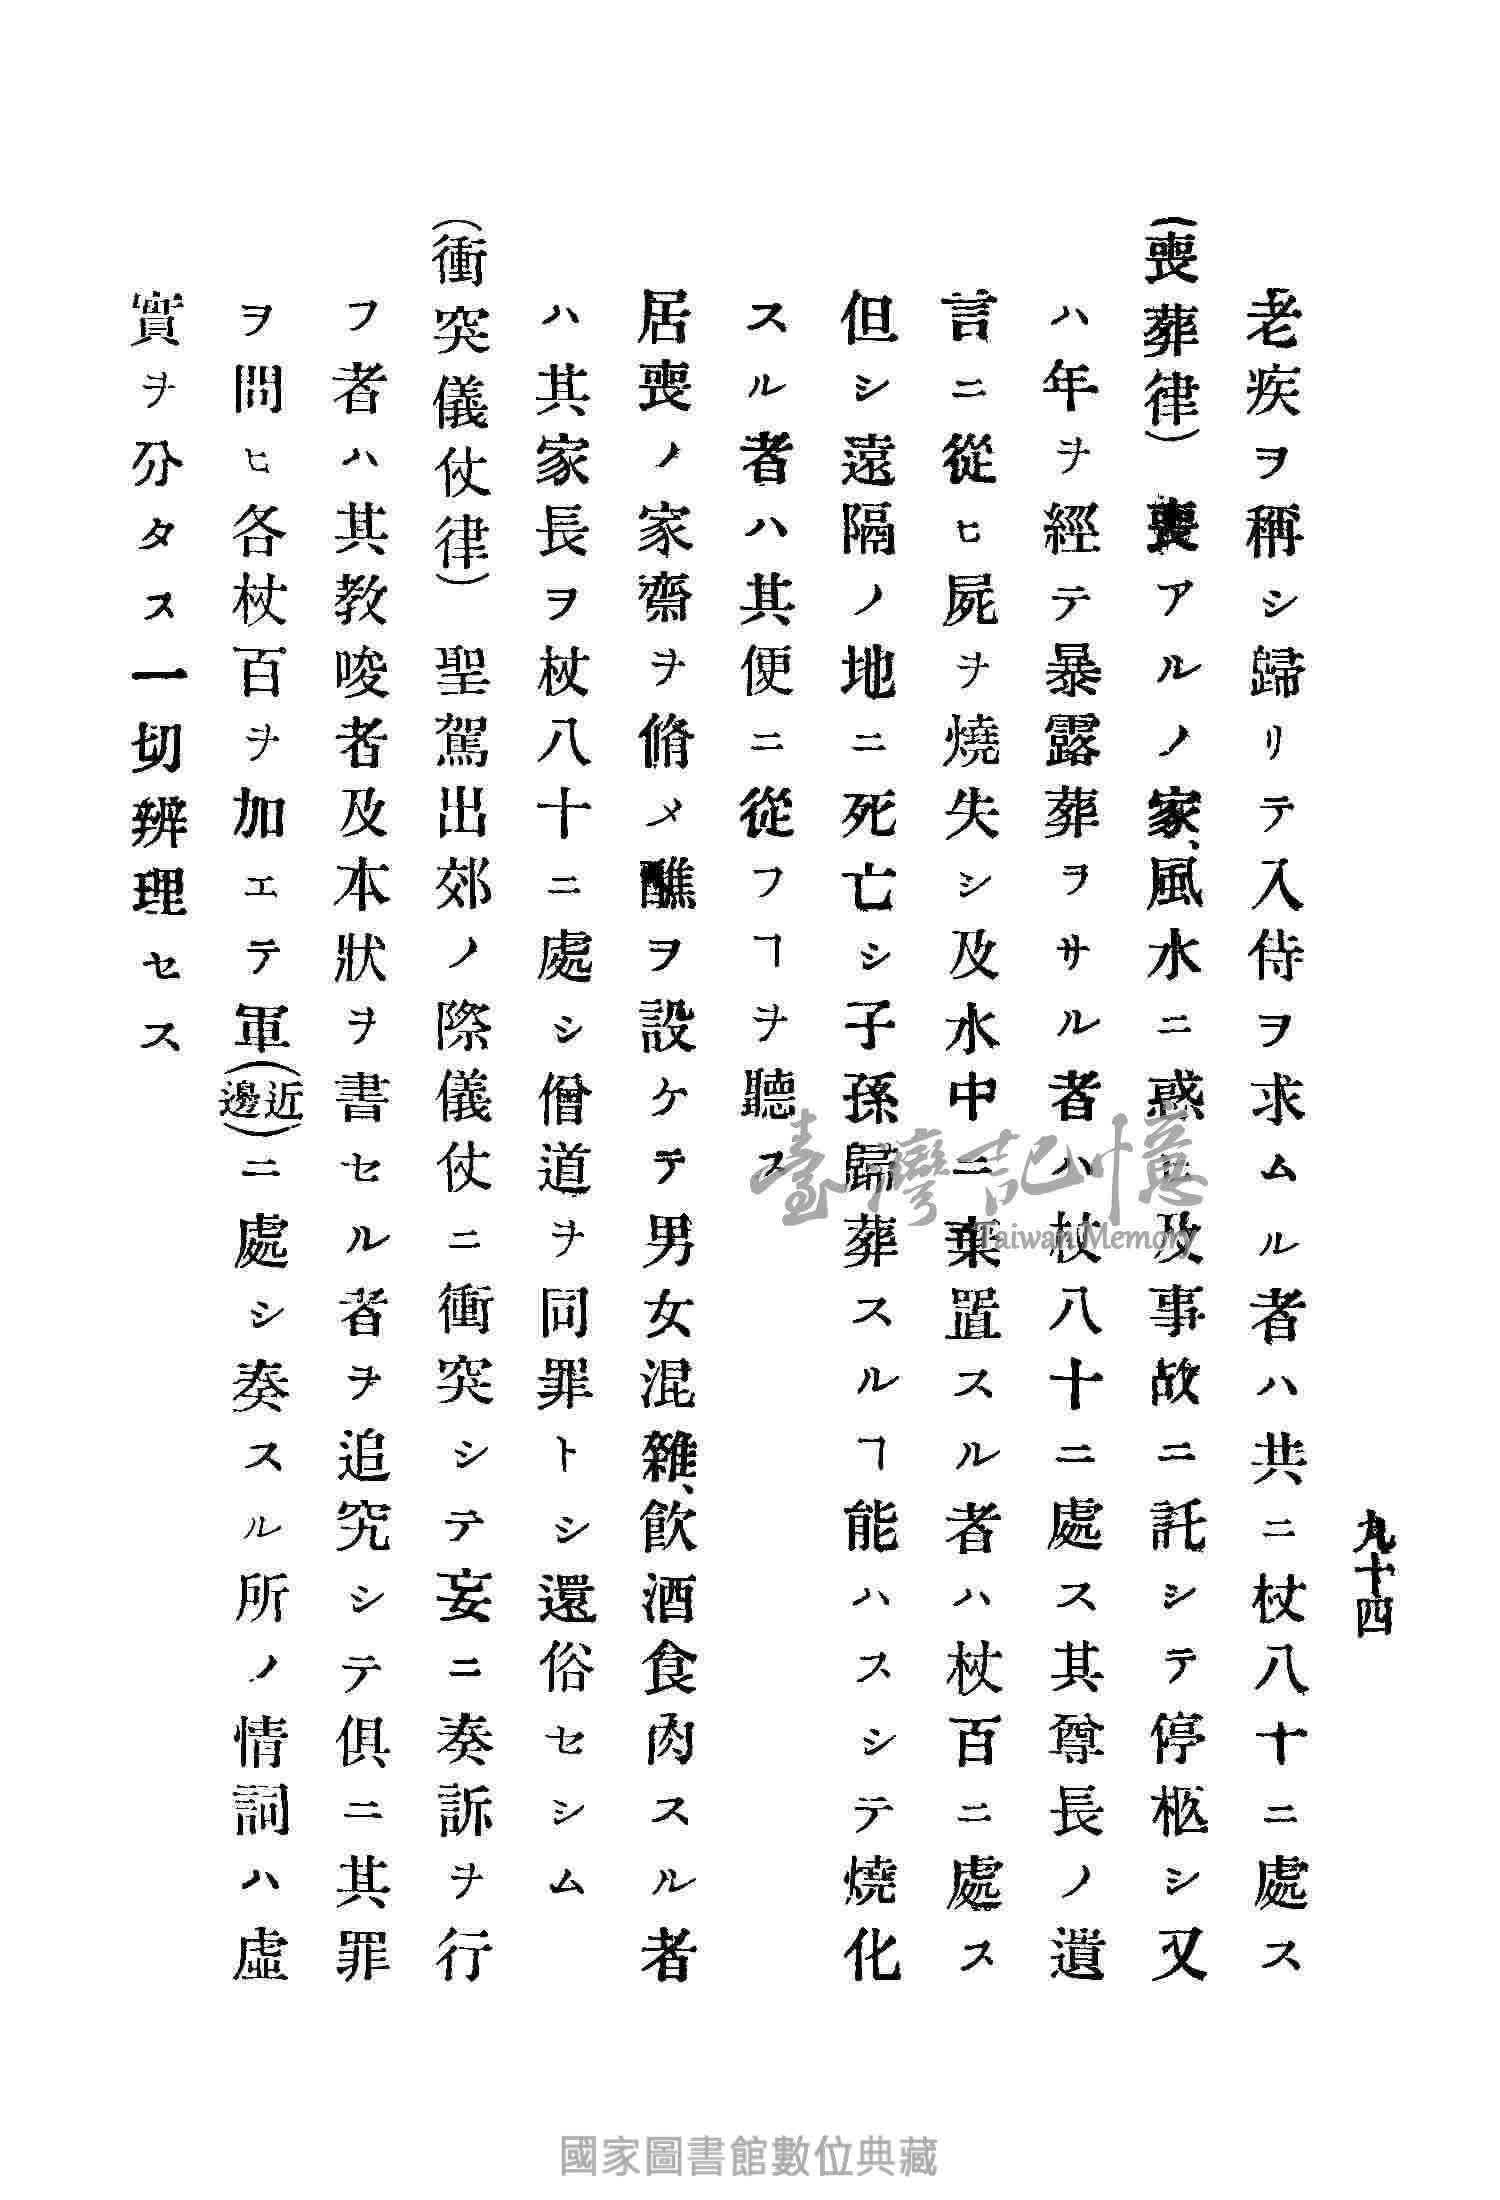 九十四
老疾ヲ稱シ歸リテ入侍ヲ求ムル者ハ共ニ杖八十ニ處ス
(喪葬律) 喪アルノ家、風水ニ惑ヒ及事故ニ託シテ停柩シ又
ハ年ヲ經テ暴露葬ヲサル者ハ杖八十ニ處ス其尊長ノ遺
言ニ從ヒ屍ヲ燒失シ及水中ニ棄置スル者ハ杖百ニ處ス
但シ遠隔ノ地ニ死亡シ子孫歸葬スルヿ能ハスシテ燒化
スル者ハ其便ニ從フヿヲ聽ス
居喪ノ家齋ヲ脩メ醮ヲ設ケテ男女混雜、飮酒食肉スル者
ハ其家長ヲ杖八十ニ處シ僧道ヲ同罪トシ還俗セシム
(衝突儀仗律) 聖駕出郊ノ際儀仗ニ衝突シテ妄ニ奏訴ヲ行
フ者ハ其教唆者及本狀ヲ書セル者ヲ追究シテ俱ニ其罪
ヲ問ヒ各杖百ヲ加エテ軍(近邊)ニ處シ奏スル所ノ情詞ハ虛
實ヲ分タス一切辨理セス
臺灣記憶
Taiwan Memory
國家圖書館數位典藏